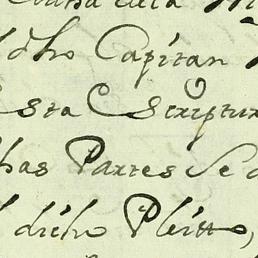 dho Capitan
esta Escriptur
has Partes Se
dicho Pleitto,